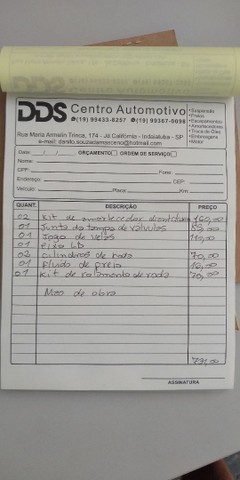 DDS Centro Automotivo
(19) 99433-8257 (19) 99367-0098
•Suspensão
•Freios
•Escapamentos
•Amortecedores
•Troca de Óleo
•Embreagem
•Motor
Rua Maria Annelin Tresca, 174 - Jd. Califórnia - Indaiatuba - SP
e-mail: danilo.souzadamasceno@hotmail.com
Data / / ORÇAMENTO ORDEM DE SERVIÇO
Nome:
CPF: Fone:
Endereço: CEP:
Veículo: Placa: Km
QUANT. DESCRIÇÃO PREÇO
02 Kit de amortecedor dianteiro 160,00
01 Junta da tampa de valvulas 59,00
01 Jogo de velas
01 eixo LD
02 cilindros de roda 70,00
01 Fluido de freio
01 Kit de rolamento de roda 70,00
Mao de obra
ASSINATURA